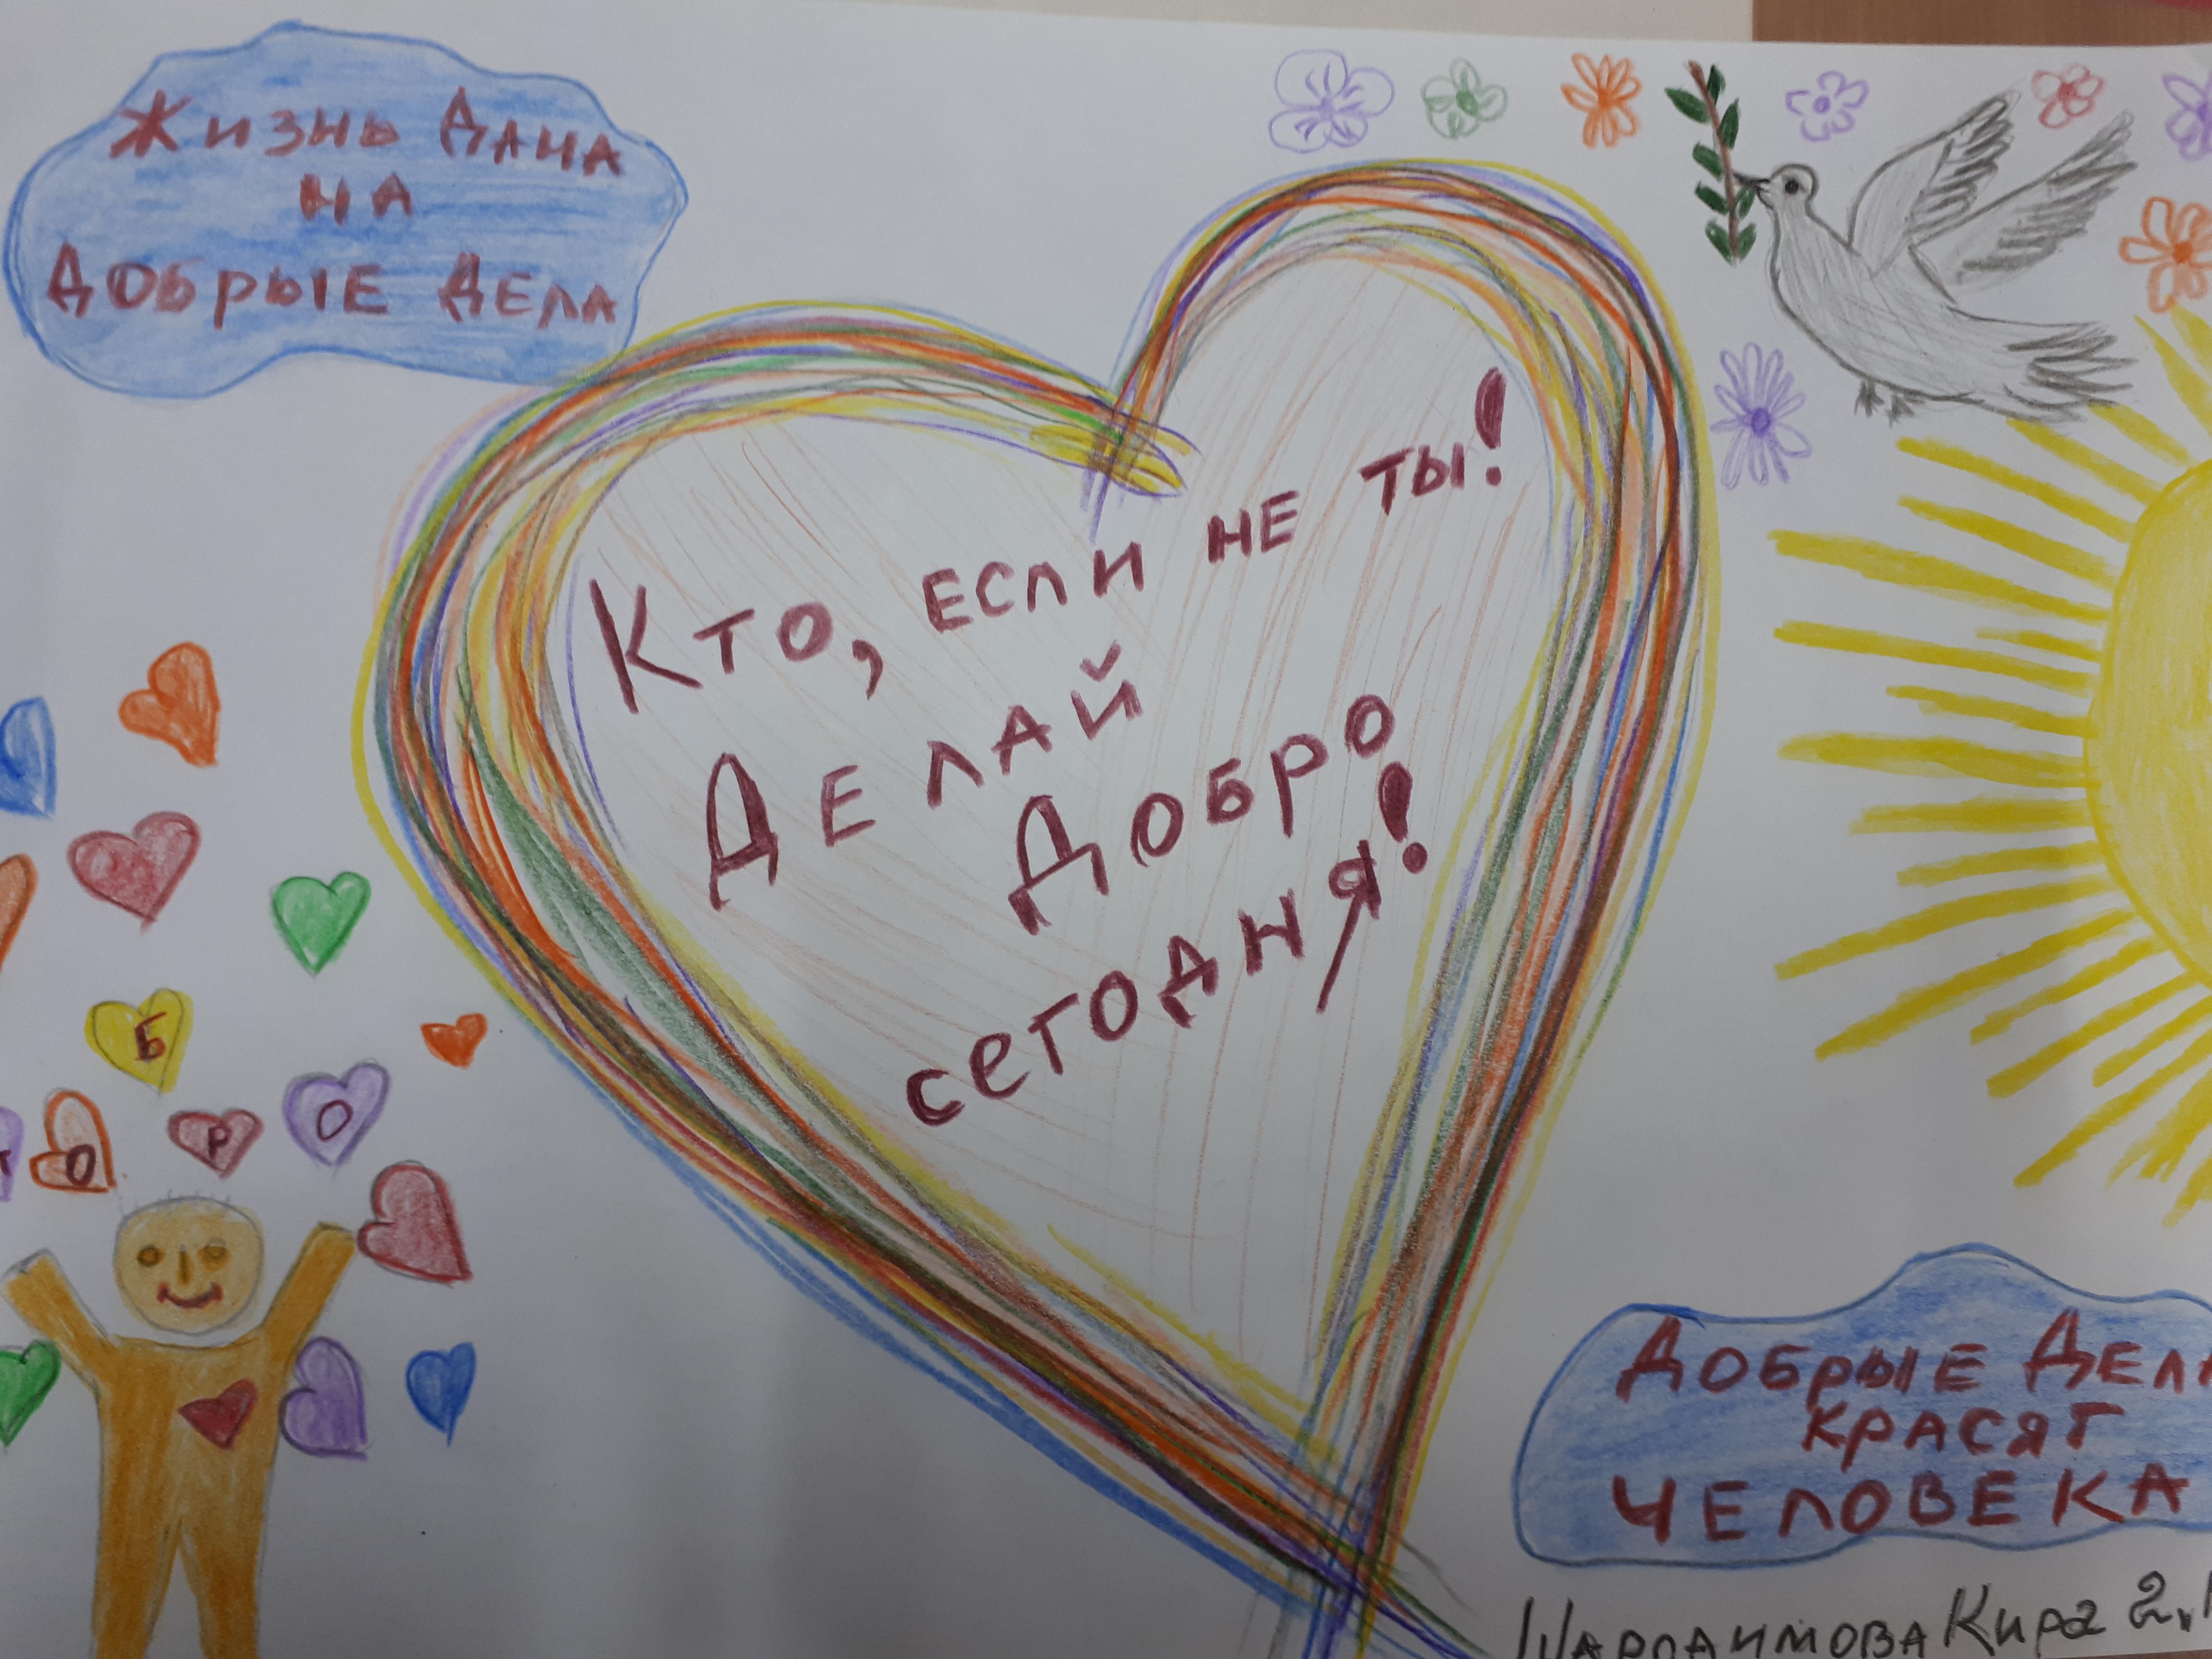 Жизнь Дана
на
Добрые Дела
Кто, если не ты!
Делай
Добро
сегодня!
Б
О Р О
Добрые Дела
красят
человека
Кира 2